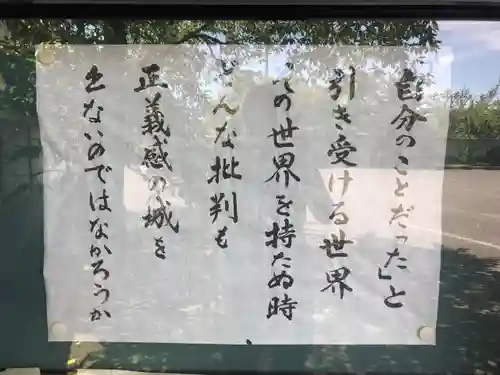 「自分のことだった」と
引き受ける世界
その世界を持たぬ時
どんな批判も
正義感の城を
出ないのではなかろうか